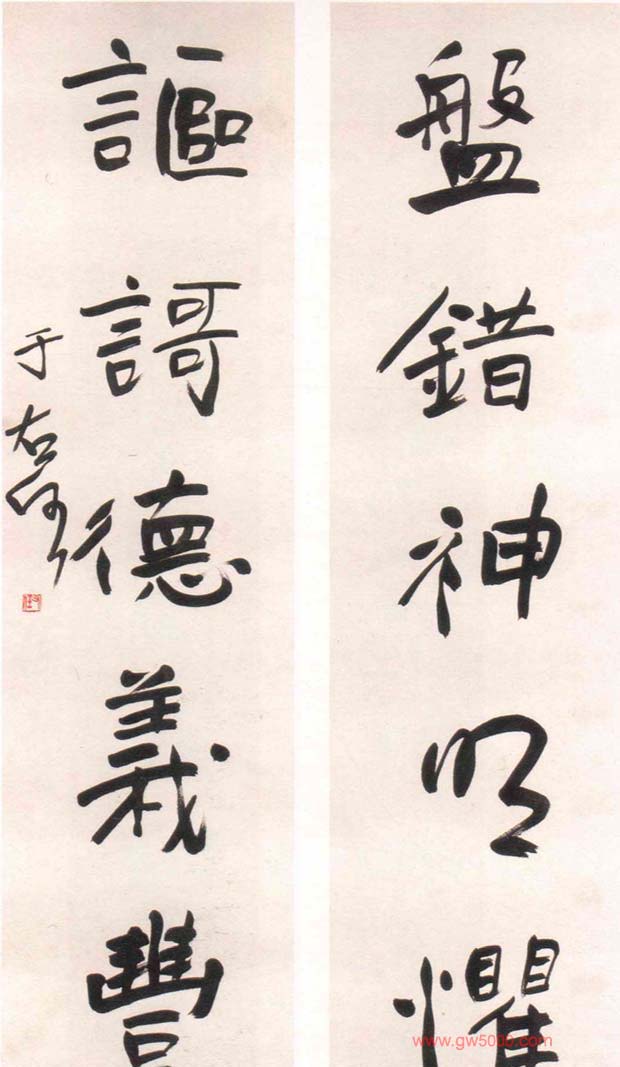 盤錯神明懼
謳謌德義豐
于右任
www.gw5000.com